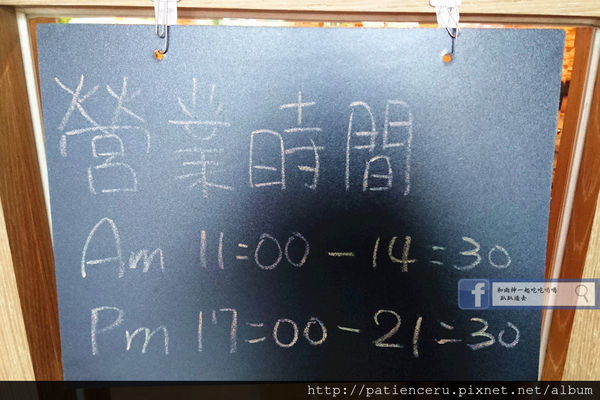 營業時間
Am 11:00-14:30
Pm 17:00-21:30
和雨神一起吃吃喝喝
趴趴造去
http://patienceru.pixnet.net/album